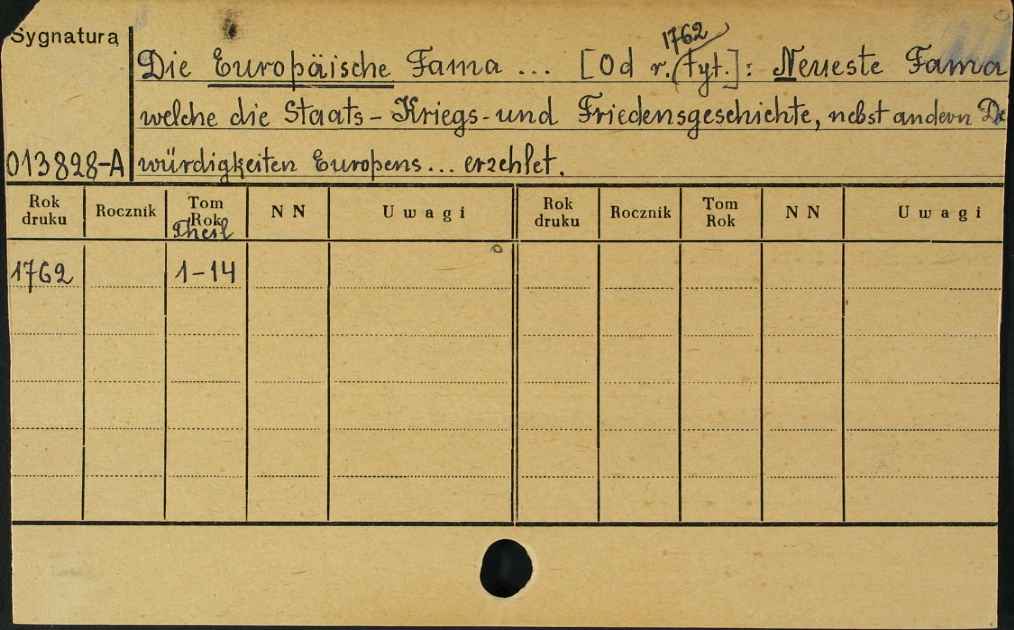 Sygnatura
Die Europäische Fama ... [Od r. 1762 (tyt.]: Neueste Fama
welche die Staats-Kriegs-und Friedensgeschichte, nebst andern
013828-A würdigkeiten Europens... erzehlet.
Rok druku Rocznik Tom Rok Theil N N Uwagi Rok druku Rocznik Tom Rok N N Uwagi
1762 1-14